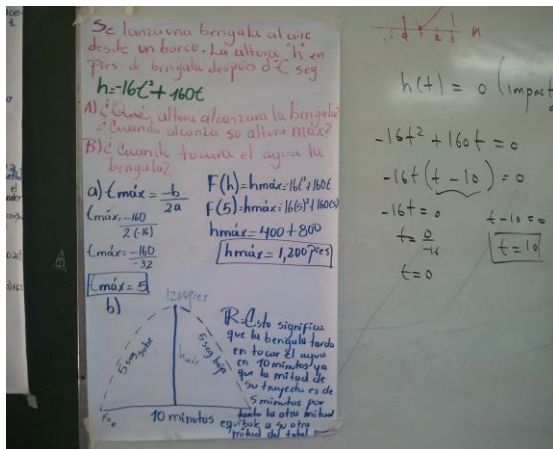 Se lanza una bengala al aire
desde un barco. La altura "h" en
pies de bengala después d't seg.
h=-16t²+160t
A) ¿Qué altura alcanzara la bengala?
¿Cuando alcanza su altura máx?
B) ¿Cuando tocara el agua la
bengala?
a) tmáx = -b
2a
tmáx = -160
2(-16)
tmáx = -160
-32
tmáx = 5
F(h)=hmáx=16t²+160t
F(5)=hmáx=16(5)²+160(5)
hmáx = 400 + 800
hmáx = 1,200 pies
b)
1200 pies
5 seg sube
5 seg baja
10 minutos
R=Esto significa
que la bengala tarda
en tocar el agua
en 10 minutos ya
que la mitad de
su trayecto es de
5 minutos por
tanto la otra mitad
equivale a su otra
mitad del total
h(t) = 0 (impact
-16t² + 160t = 0
-16t(t - 10) = 0
-16t = 0
t = 0
-16
t = 0
t - 10 = 0
t = 10